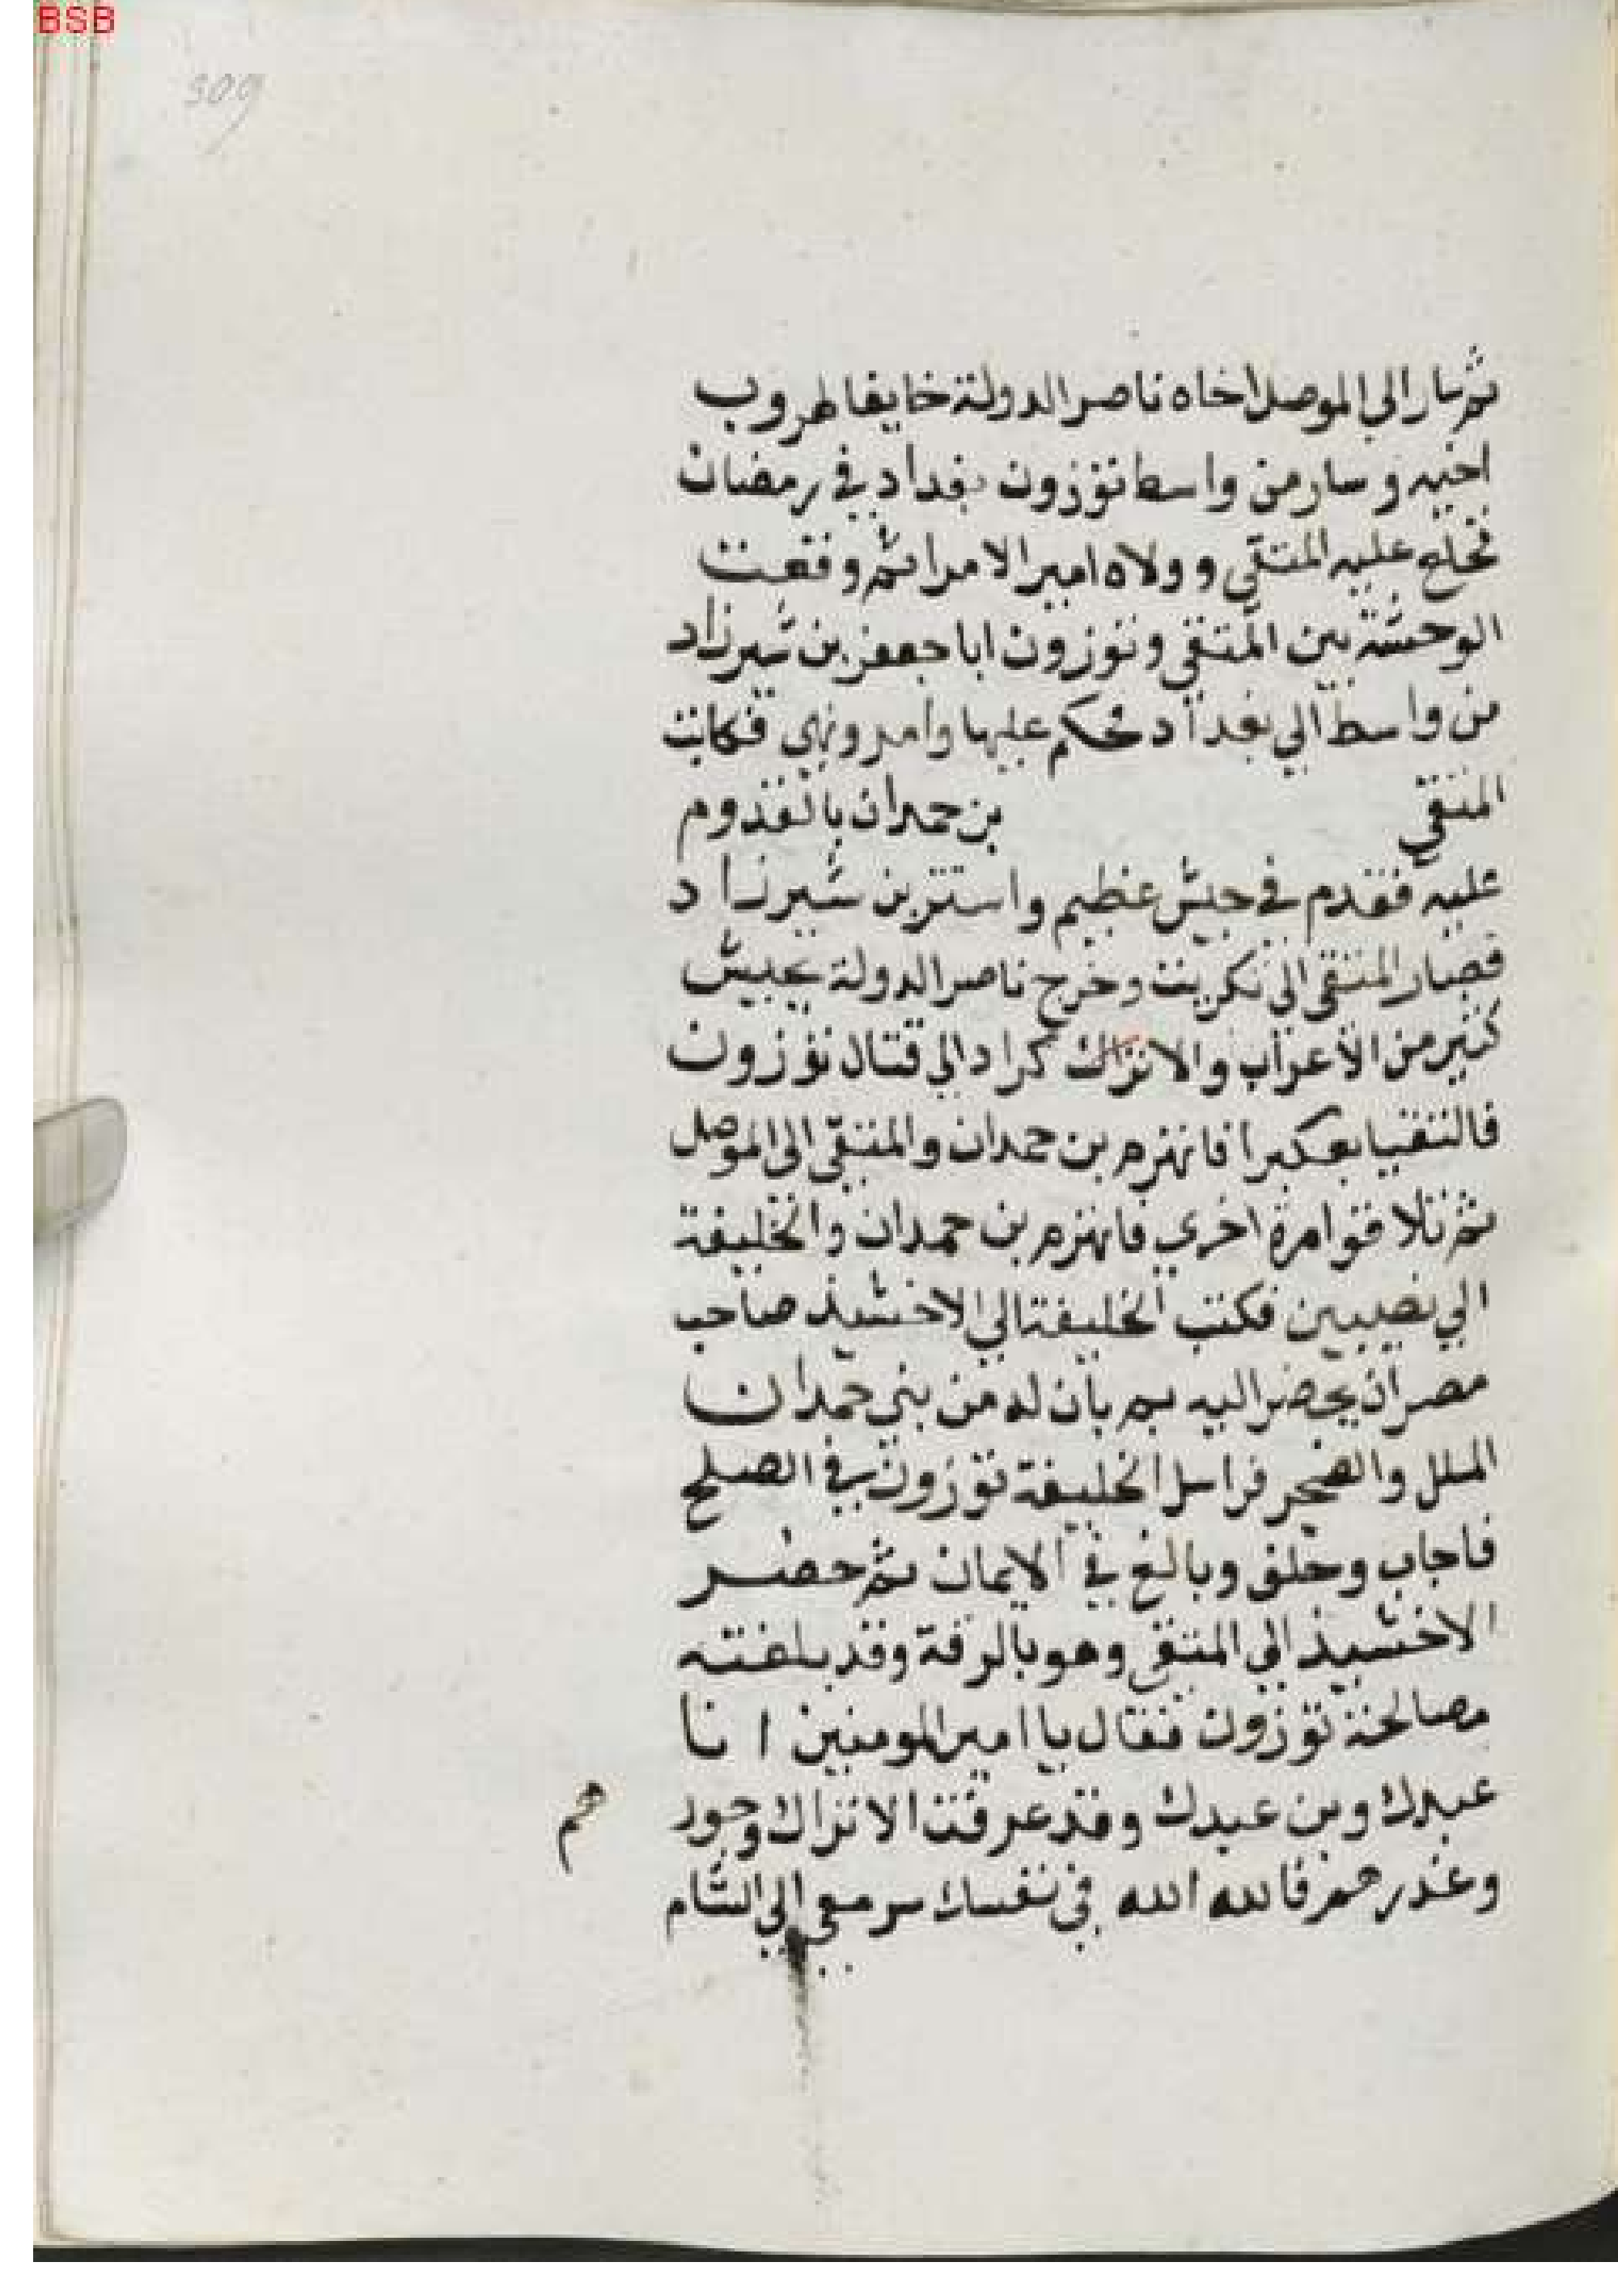 BSB
309
ثم سار الى الموصل اخاه ناصر الدولة خايفا لهروب
اخيه وسار من واسط توزون بغداد في رمضان
فخلع عليه المتقي وولاه امير الامرا ثم وقعت
الوحشة بين المتقي وتوزون ابا جعفر بن شيرزاد
من واسط الي بغداد فحكم عليها وامر ونهي فكاتب
المتقي بن حمدان بالقدوم
عليه فقدم في جيش عظيم واستتر بن شيرزاد
فصار المتقي الى تكريت وخرج ناصر الدولة بجيش
كثير من الأعراب والاتراك كراد الي قتال توزون
فالتقيا بعكبرا فانهزم بن حمدان والمتقي الى الموصل
ثم تلافوا مرة اخري فانهزم بن حمدان والخليفة
الي نصيبين فكتب الخليفة الي الاخشيذ صاحب
مصر ان يحضر اليه بان له من بني حمدان
الملل والضجر فراسل الخليفة توزون في الصلح
فاجاب وحلف وبالغ في الايمان ثم حضر
الاخشيذ الي المتقي وهو بالرقة وقد بلغته
مصالحة توزون فقال يا امير المومنين انا
عبدك وبن عبدك وقد عرفت الاتراك وجور هم
وغدرهم فالله الله في نفسك سر معي الي الشام